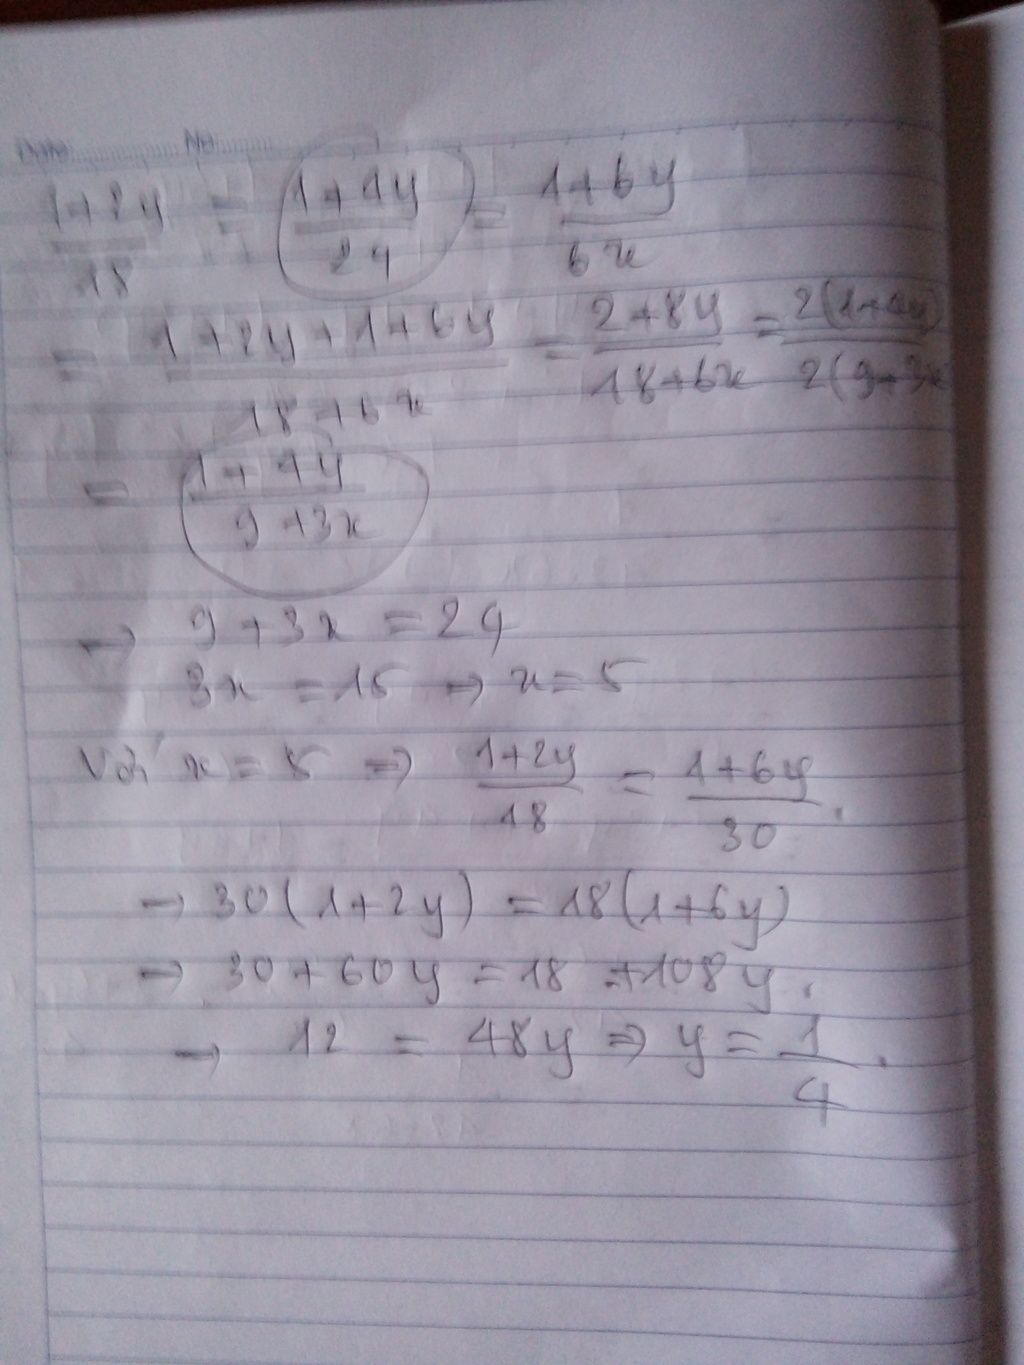 Date No
1+2y/18 = 1+4y/24 = 1+6y/6x
= 1+2y+1+6y/18+6x = 2+8y/18+6x = 2(1+4y)/2(9+3x
= 1+4y/9+3x
→ 9+3x = 24
3x = 15 → x = 5
Với x = 5 ⇒ 1+2y/18 = 1+6y/30.
→ 30(1+2y) = 18(1+6y)
→ 30+60y = 18 +108y.
→ 12 = 48y ⇒ y = 1/4.